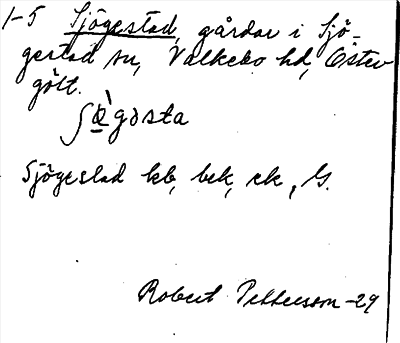 1-5 Sjögestad, gårdar i Sjö-
gestad sn, Valkebo hd, Öster-
götl.
ʃø̀gəsta
Sjögestad kb, bek, ek, G.
Robert Petterson -29